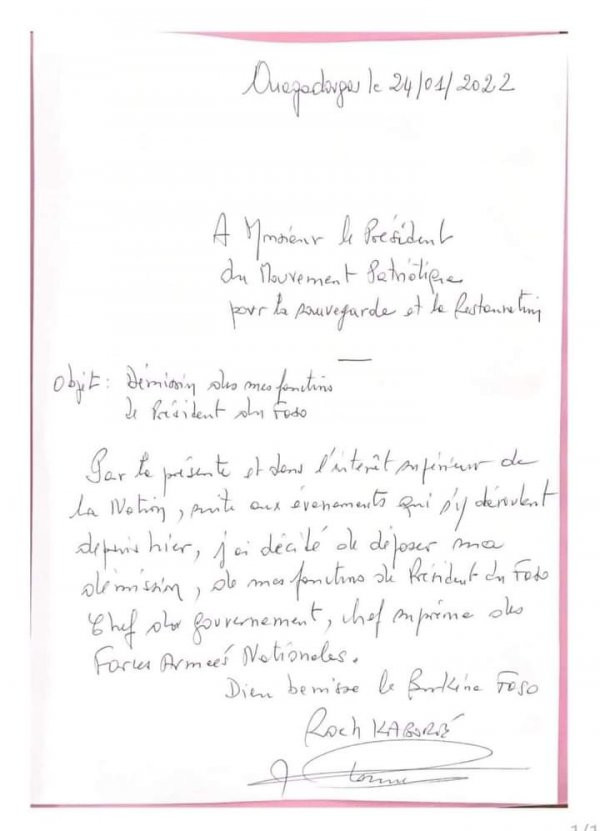 Ouagadougou le 24/01/2022
A Monsieur le Président
du Mouvement Patriotique
pour la sauvegarde et la Restauration
Objet: Démission des mes fonctions
de Président du Faso
Par la présente et dans l'intérêt supérieur de
la Nation, suite aux évenements qui s'y déroulent
depuis hier, j'ai décidé de déposer ma
démission, de mes fonctions de Président du Faso
Chef du gouvernement, chef suprême des
Forces Armées Nationales.
Dieu benisse le Burkina Faso
Roch KABORÉ
1/1